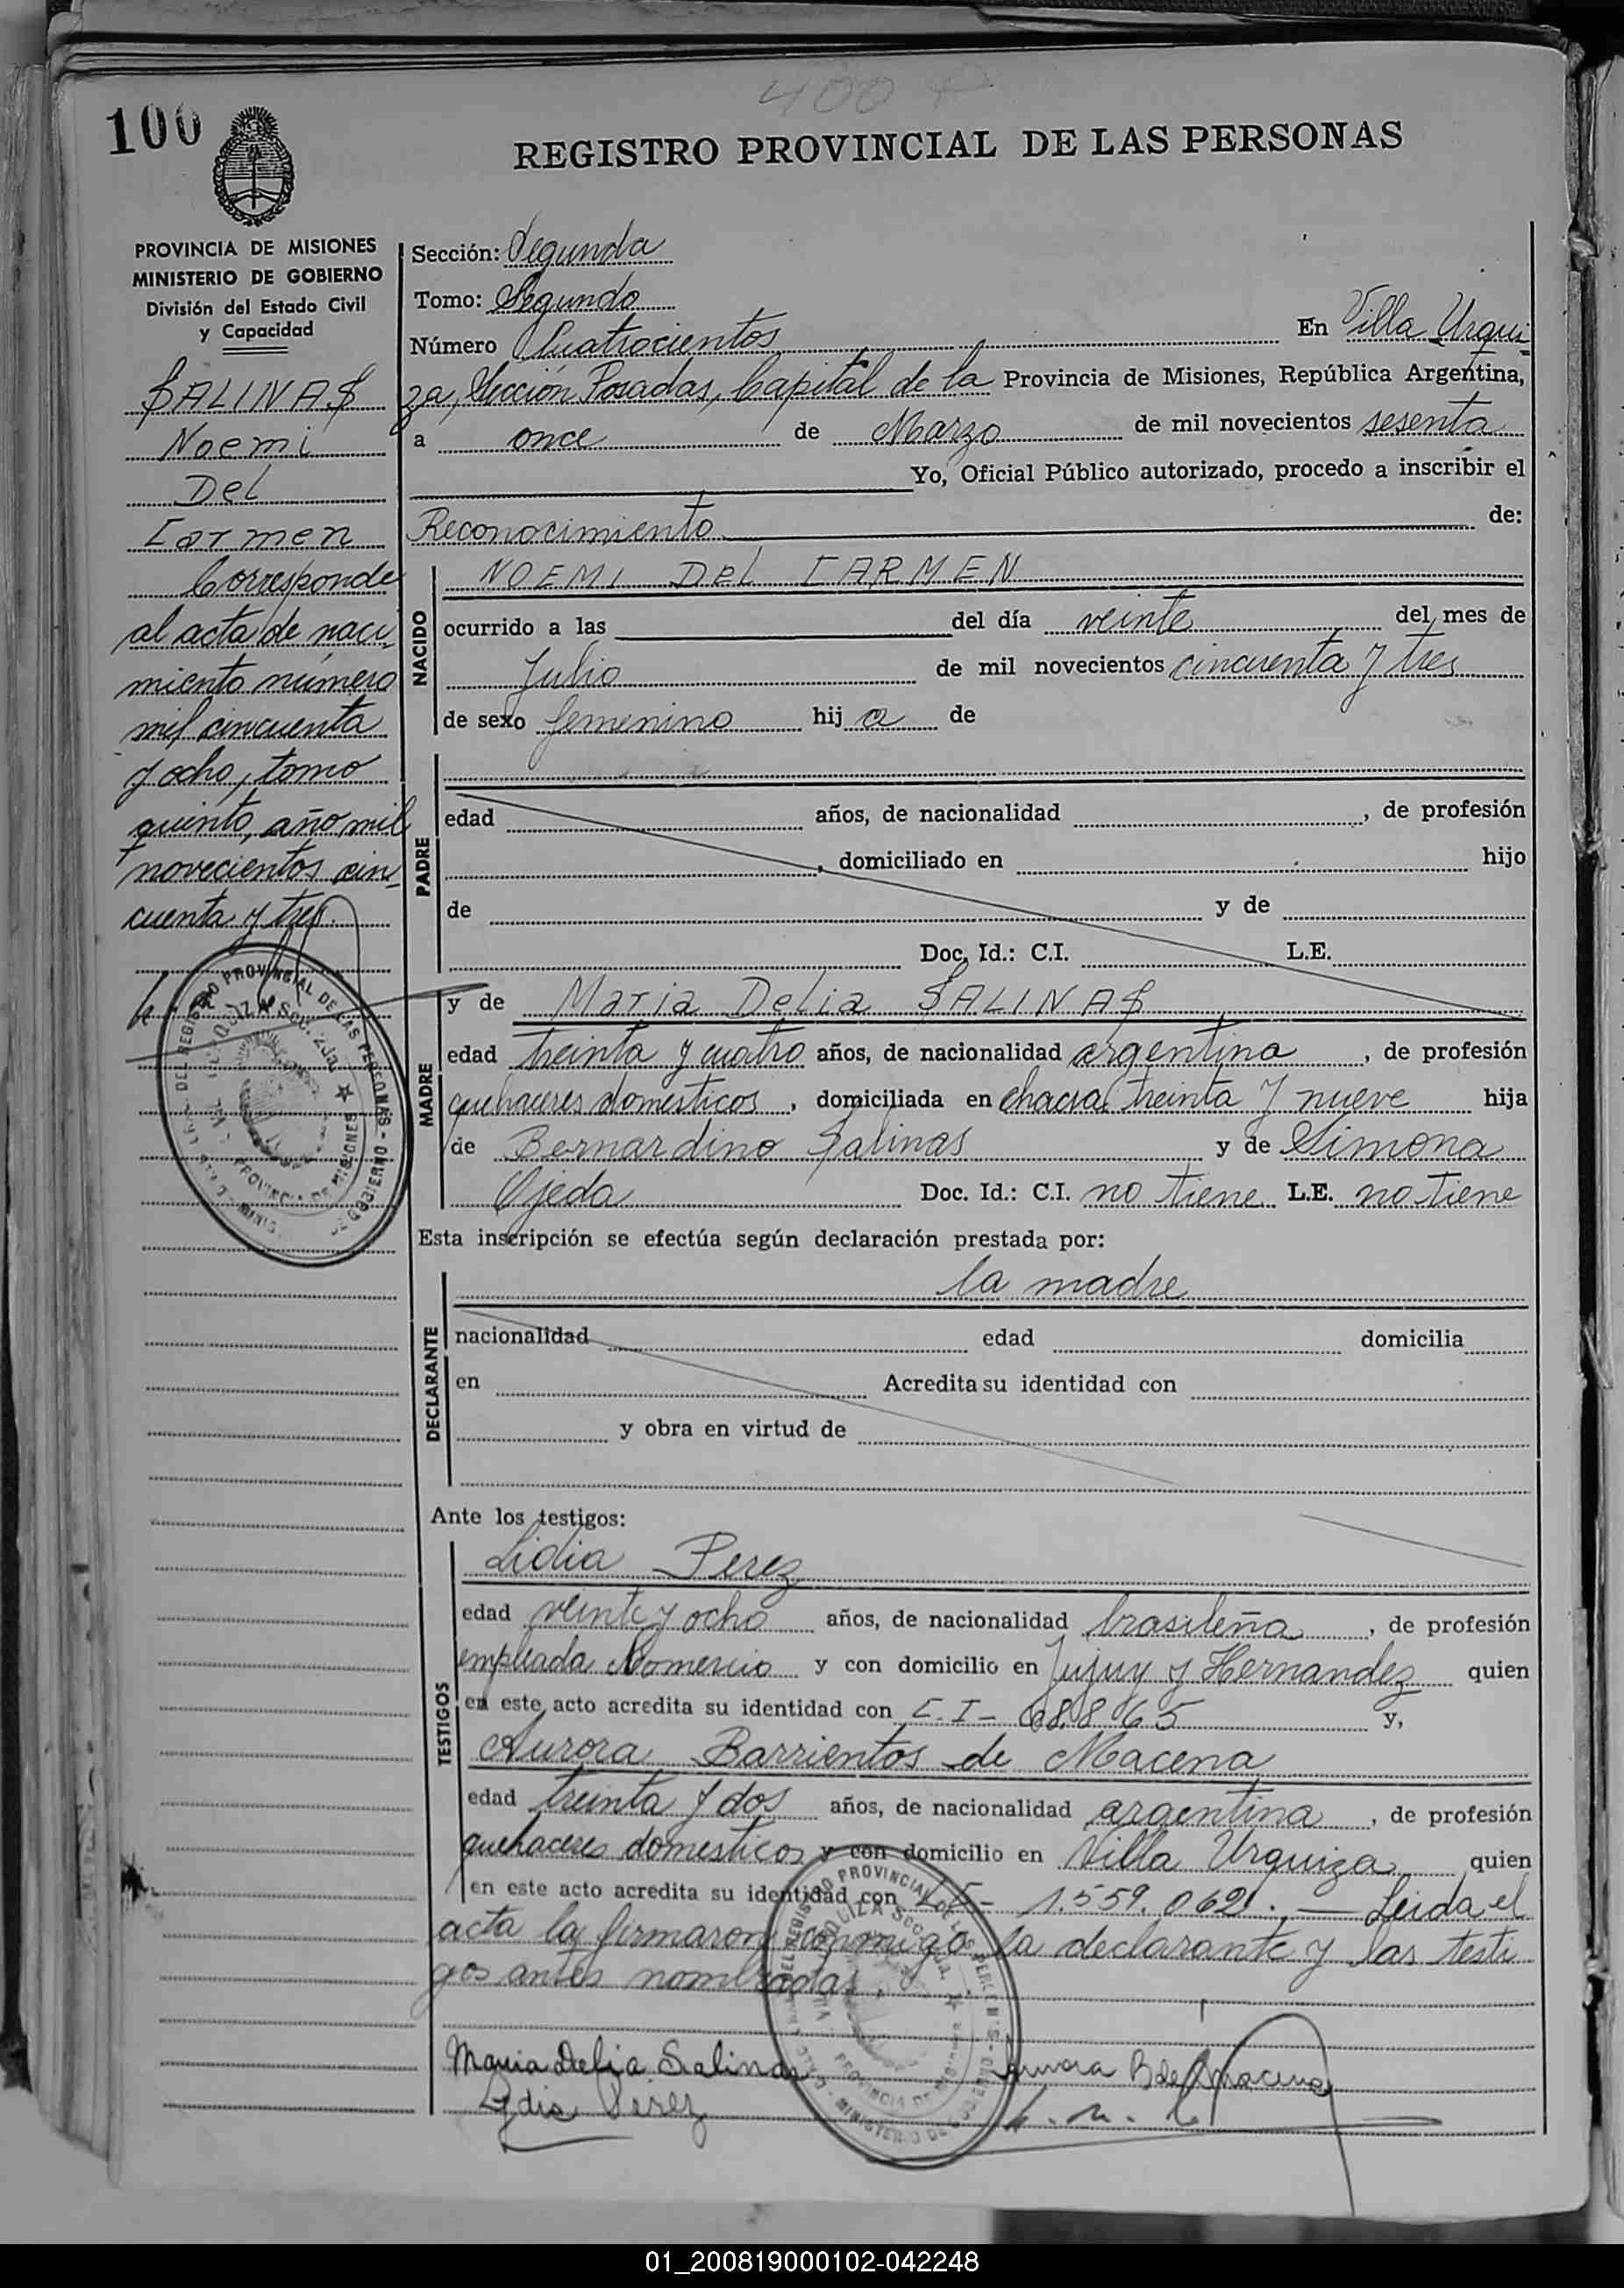 400
100
REGISTRO PROVINCIAL DE LAS PERSONAS
PROVINCIA DE MISIONES
MINISTERIO DE GOBIERNO
División del Estado Civil
y Capacidad
SALINAS
Noemi
Del
Carmen
Corresponde
al acta de naci
miento número
mil cincuenta
y ocho, tomo
quinto, año mil
novecientos cin
cuenta y tres.
Sección: Segunda
Tomo: Segundo
Número Cuatrocientos En Villa Urqui
za, Sección Posadas, Capital de la Provincia de Misiones, República Argentina,
a once de Marzo de mil novecientos sesenta
Yo, Oficial Público autorizado, procedo a inscribir el
Reconocimiento de:
NACIDO
NOEMI DEL CARMEN
ocurrido a las del día veinte del mes de
Julio de mil novecientos cincuenta y tres
de sexo femenino hij a de
PADRE
edad años, de nacionalidad , de profesión
, domiciliado en hijo
de y de
Doc. Id.: C.I. L.E.
MADRE
y de Maria Delia SALINAS
edad treinta y cuatro años, de nacionalidad argentina , de profesión
quehaceres domesticos , domiciliada en chacra treinta y nueve hija
de Bernardino Salinas y de Simona
Ojeda Doc. Id.: C.I. no tiene L.E. no tiene
Esta inscripción se efectúa según declaración prestada por:
DECLARANTE
la madre
nacionalidad edad domicilia
en Acredita su identidad con
y obra en virtud de
Ante los testigos:
TESTIGOS
Lidia Perez
edad veinte y ocho años, de nacionalidad brasileña , de profesión
empleada Comercio y con domicilio en Jujuy y Hernandez quien
en este acto acredita su identidad con C.I- 68.865 y,
Aurora Barrientos de Macena
edad treinta y dos años, de nacionalidad argentina , de profesión
quehaceres domesticos y con domicilio en Villa Urquiza quien
en este acto acredita su identidad con 1.559.062.- Leida el
acta la firmaron conmigo la declarante y las testi
gos antes nombradas.
Maria Delia Salinas Aurora B de Macena
Lydia Pérez
01_200819000102-042248